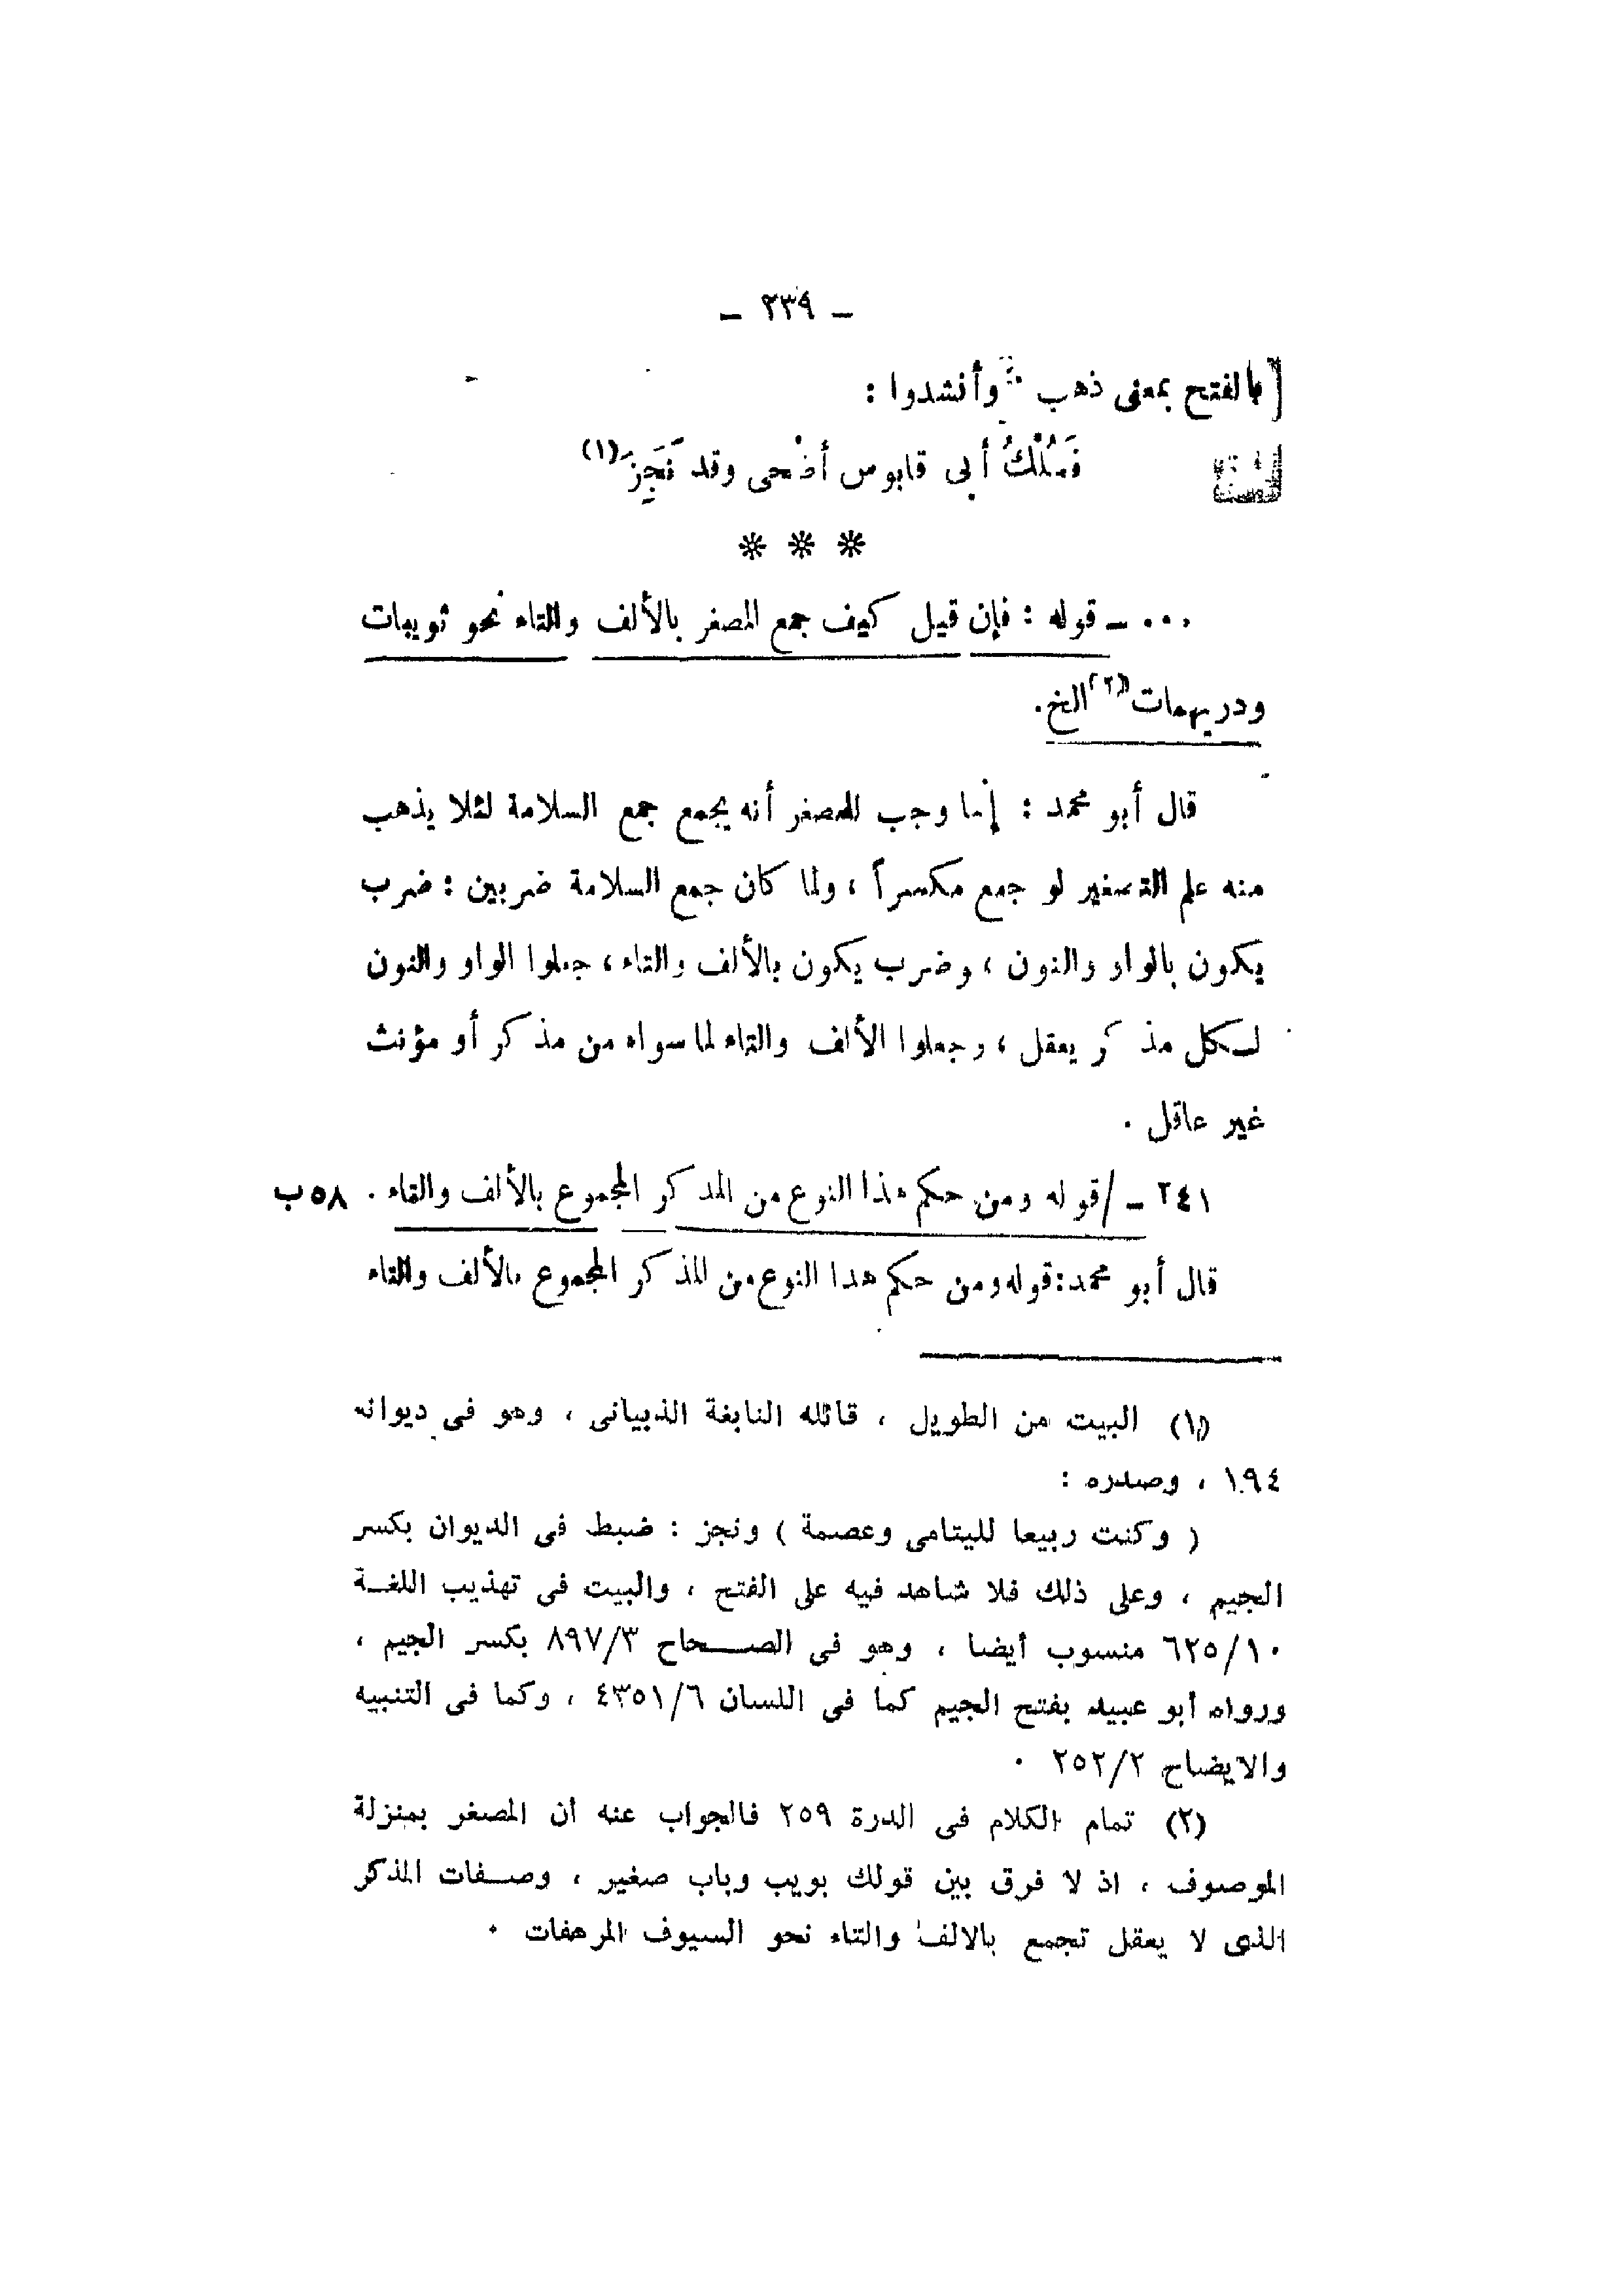 ـ ٢٣٩ ـ
بالفتح بمعنى ذهب وأنشدوا :
فَمُلْكُ أبى قابوس أضْحى وقد نَجِزَ (١)
* * *
... ـ قوله : فإن قيل كيف جمع المصغر بالألف والتاء نحو ثويبات
ودريهمات (٢) الخ .
قال أبو محمد : إنما وجب للمصغر أنه يجمع جمع السلامة لئلا يذهب
منه علم التصغير لو جمع مكسراً ، ولما كان جمع السلامة ضربين : ضرب
يكون بالواو والنون ، وضرب يكون بالألف والتاء ، جعلوا الواو والنون
لكل مذكر يعقل ، وجعلوا الألف والتاء لما سواه من مذكر أو مؤنث
غير عاقل .
٢٤١ ـ / قوله ومن حكم هذا النوع من المذكر المجموع بالألف والتاء . ٥٨ب
قال أبو محمد : قوله ومن حكم هذا النوع من المذكر المجموع بالألف والتاء
(١) البيت من الطويل ، قائله النابغة الذبيانى ، وهو فى ديوانه
١٩٤ ، وصدره :
( وكنت ربيعا لليتامى وعصمة ) ونجز : ضبط فى الديوان بكسر
الجيم ، وعلى ذلك فلا شاهد فيه على الفتح ، والبيت فى تهذيب اللغة
٦٢٥/١٠ منسوب أيضا ، وهو فى الصحاح ٨٩٧/٣ بكسر الجيم ،
ورواه أبو عبيد بفتح الجيم كما فى اللسان ٤٣٥١/٦ ، وكما فى التنبيه
والايضاح ٢٥٢/٢ .
(٢) تمام الكلام فى الدرة ٢٥٩ فالجواب عنه أن المصغر بمنزلة
الموصوف ، اذ لا فرق بين قولك بويب وباب صغير ، وصفات المذكر
الذى لا يعقل تجمع بالالف والتاء نحو السيوف المرهفات .